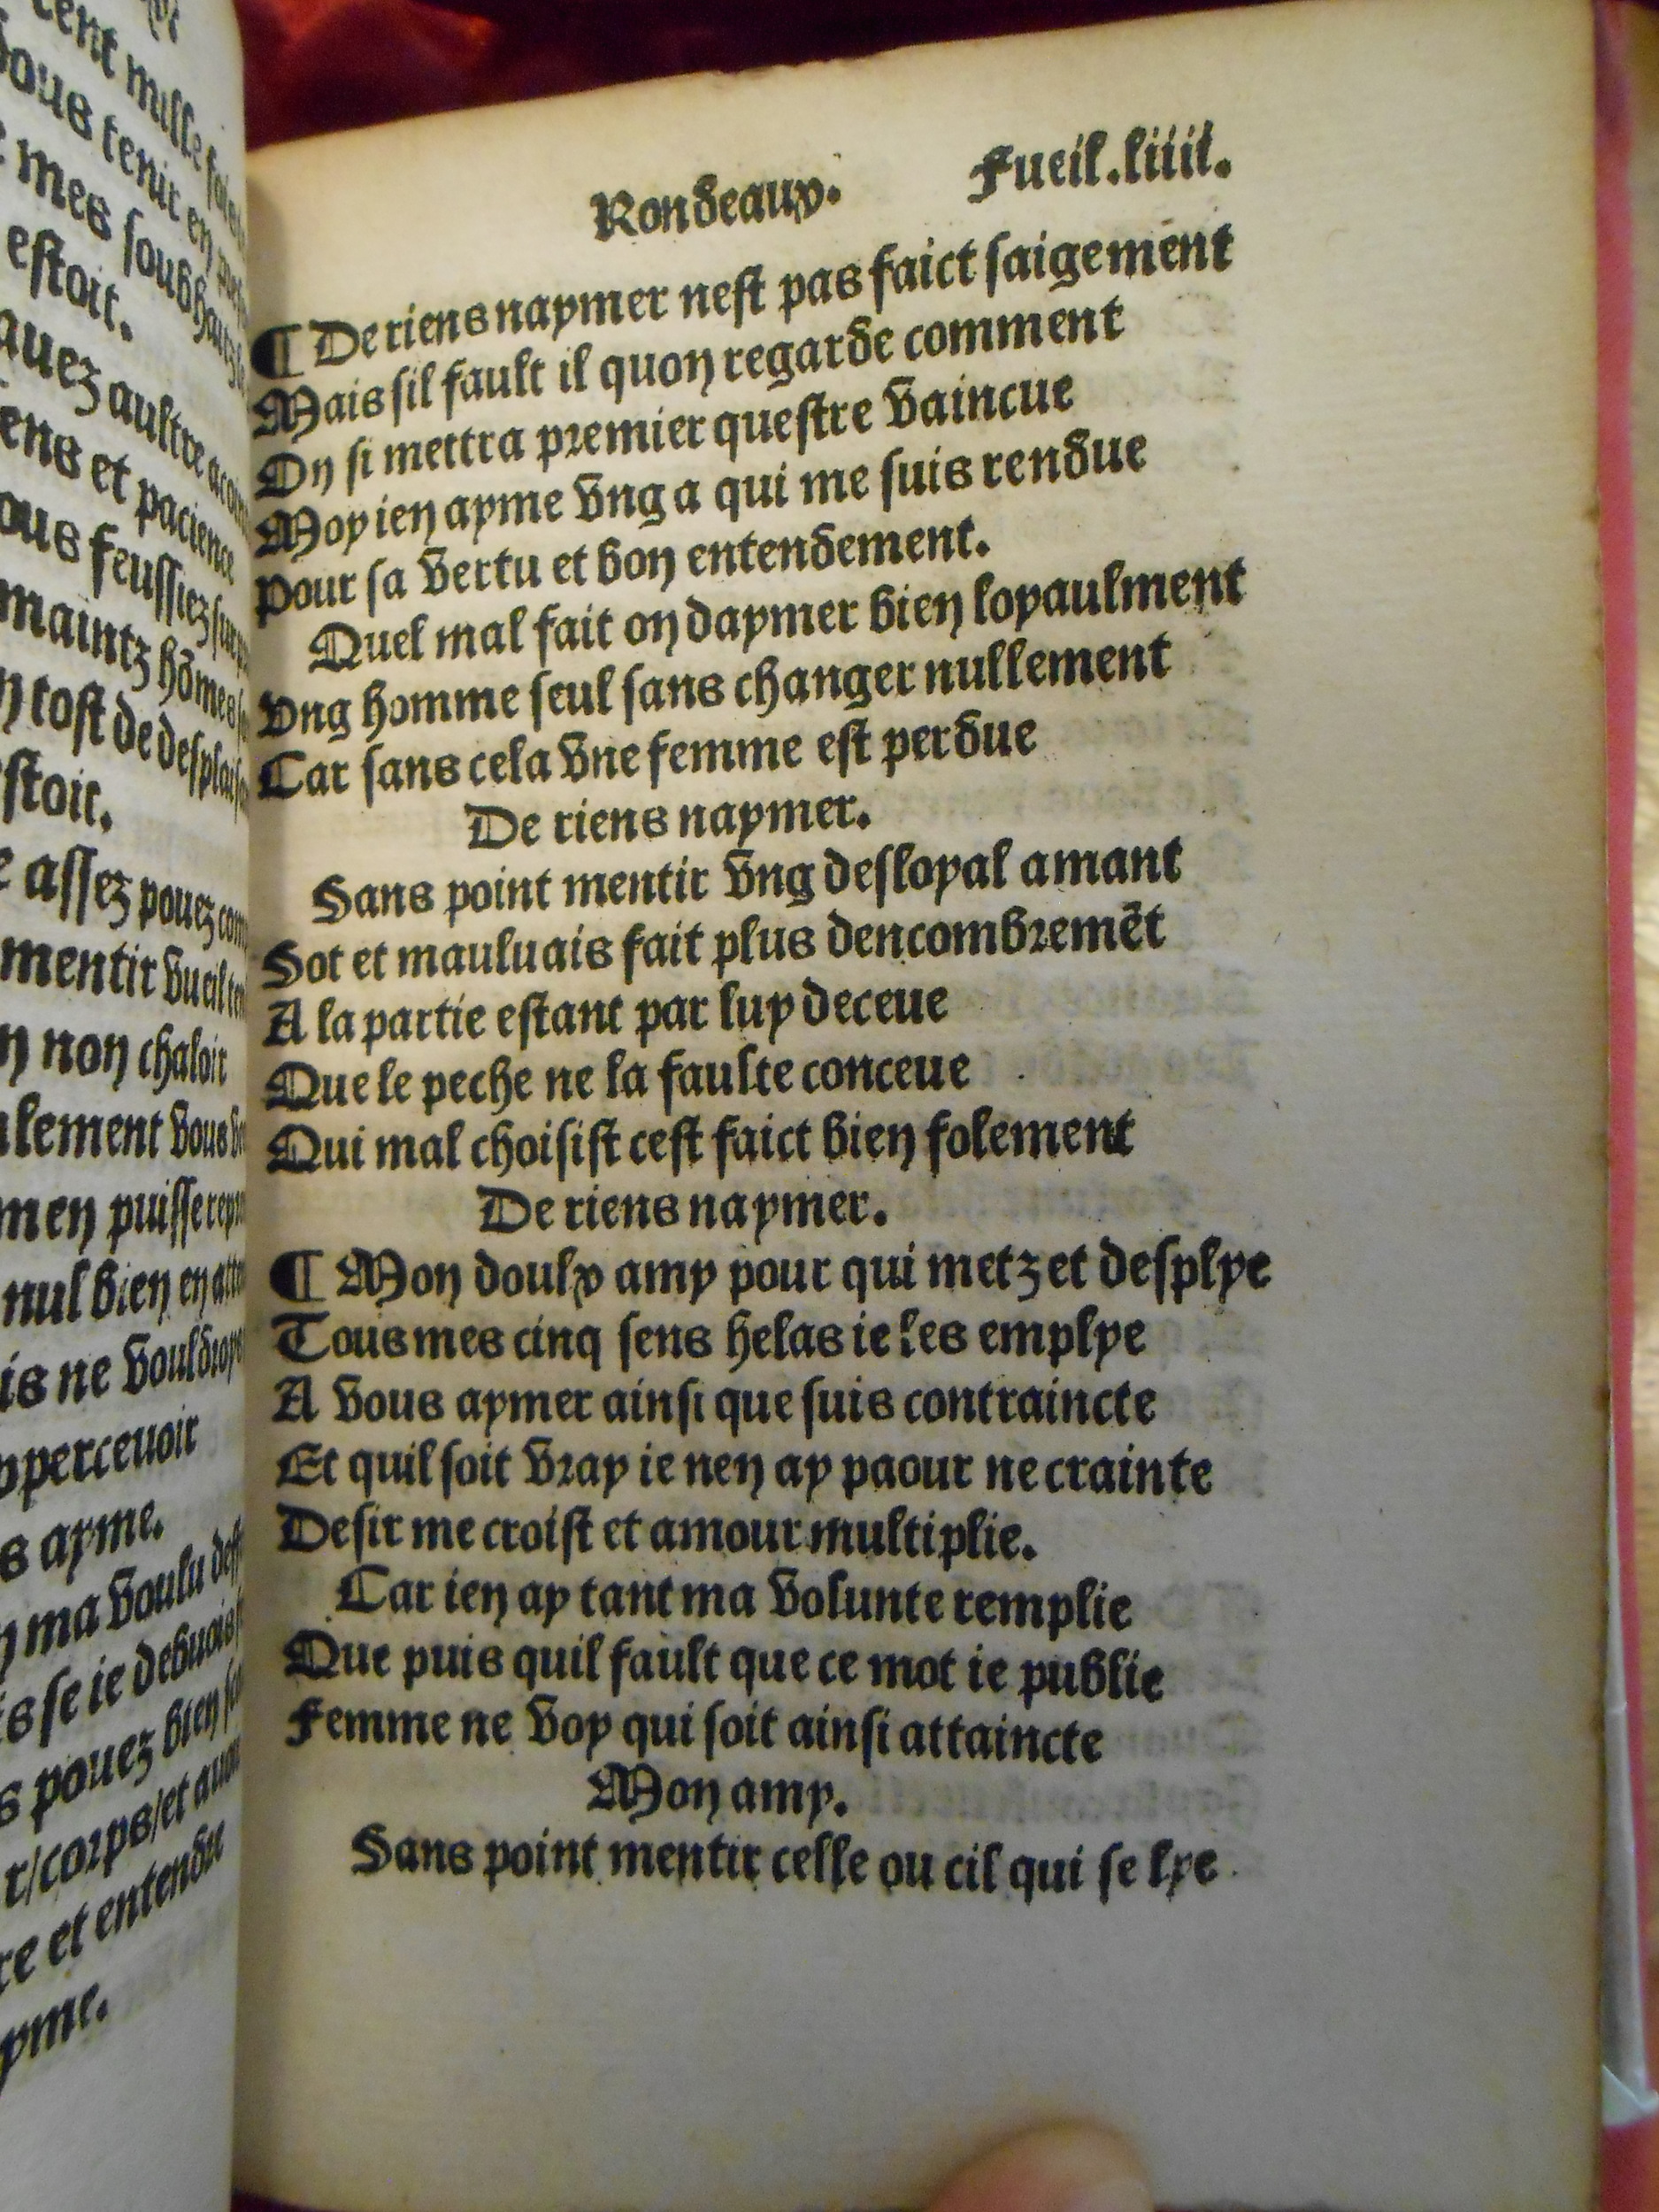 cent mille
vous tenir en
mes soubhaitz
estoit.
auez aultre
ens et pacience
ous feussiez
maintz hões
n tost de
stoit.
assez pouez
mentir vueil
n non chaloir
lement vous
men puisse
nul bien en
is ne vouldroye
percevoir
s ayme.
n ma voulu
s se ie debuois
s pouez bien
r/corps/et
re et entendu
yme.
Rondeaux. Fueil.liiii.
¶ De riens naymer nest pas faict saigement
Mais sil fault il quon regarde comment
On si mettra premier questre vaincue
Moy ien ayme vng a qui me suis rendue
Pour sa vertu et bon entendement.
Quel mal fait on daymer bien loyaulment
Vng homme seul sans changer nullement
Car sans cela vne femme est perdue
De riens naymer.
Sans point mentir vng desloyal amant
Sot et mauluais fait plus dencombremẽt
A la partie estant par luy deceue
Que le peche ne la faulte conceue
Qui mal choisist cest faict bien folement
De riens naymer.
¶ Mon doulx amy pour qui metz et desplye
Tous mes cinq sens helas ie les emplye
A vous aymer ainsi que suis contraincte
Et quil soit vray ie nen ay paour ne crainte
Desir me croist et amour multiplie.
Car ien ay tant ma volunte remplie
Que puis quil fault que ce mot ie publie
Femme ne voy qui soit ainsi attaincte
Mon amy.
Sans point mentir celle ou cil qui se lye